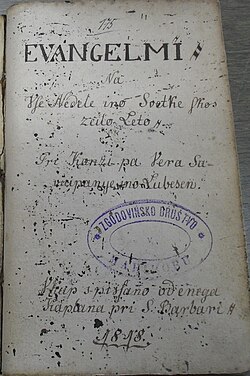 15
EVANGELMI
Na
Vse Nedele ino Svetke skos
zeilo Leto
Pri Konzi pa Vera Sa-
vupanye ino Lubesen.
ZGODOVINSKO DRUŠTVO
Vkup spissano od enega
Kaplana pri S. Barbari
1818.